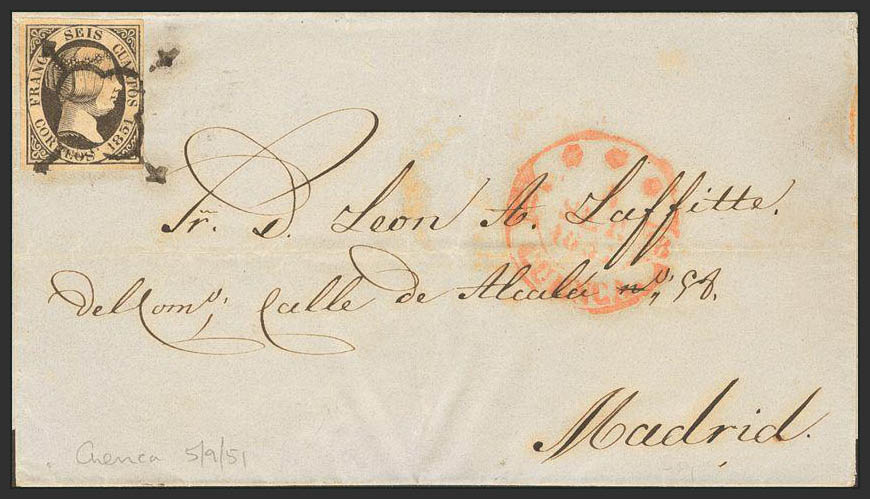 FRANCO SEIS CUARTOS
CORREOS 1851
Sr. D. Leon A. Laffitte.
del Com.º, Calle de Alcalá nº, 58.
Madrid.
CUENCA
Cuenca 5/9/51